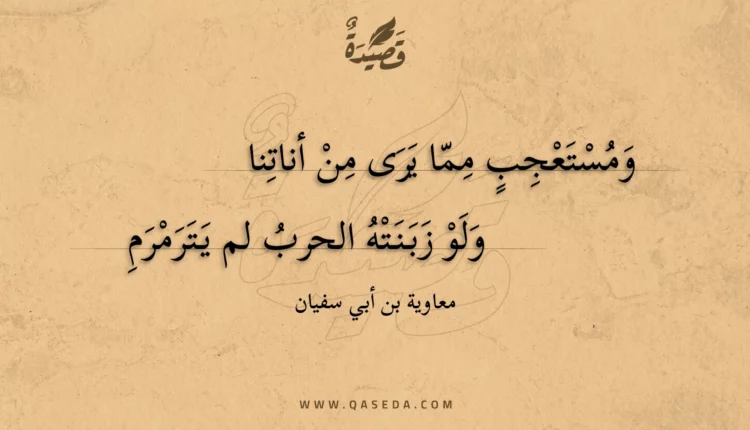 قَصِيْدَةٌ
وَمُسْتَعْجِبٍ مِمّا يَرَى مِنْ أناتِنا
وَلَوْ زَبَنَتْهُ الحربُ لم يَتَرَمْرَمِ
معاوية بن أبي سفيان
WWW.QASEDA.COM